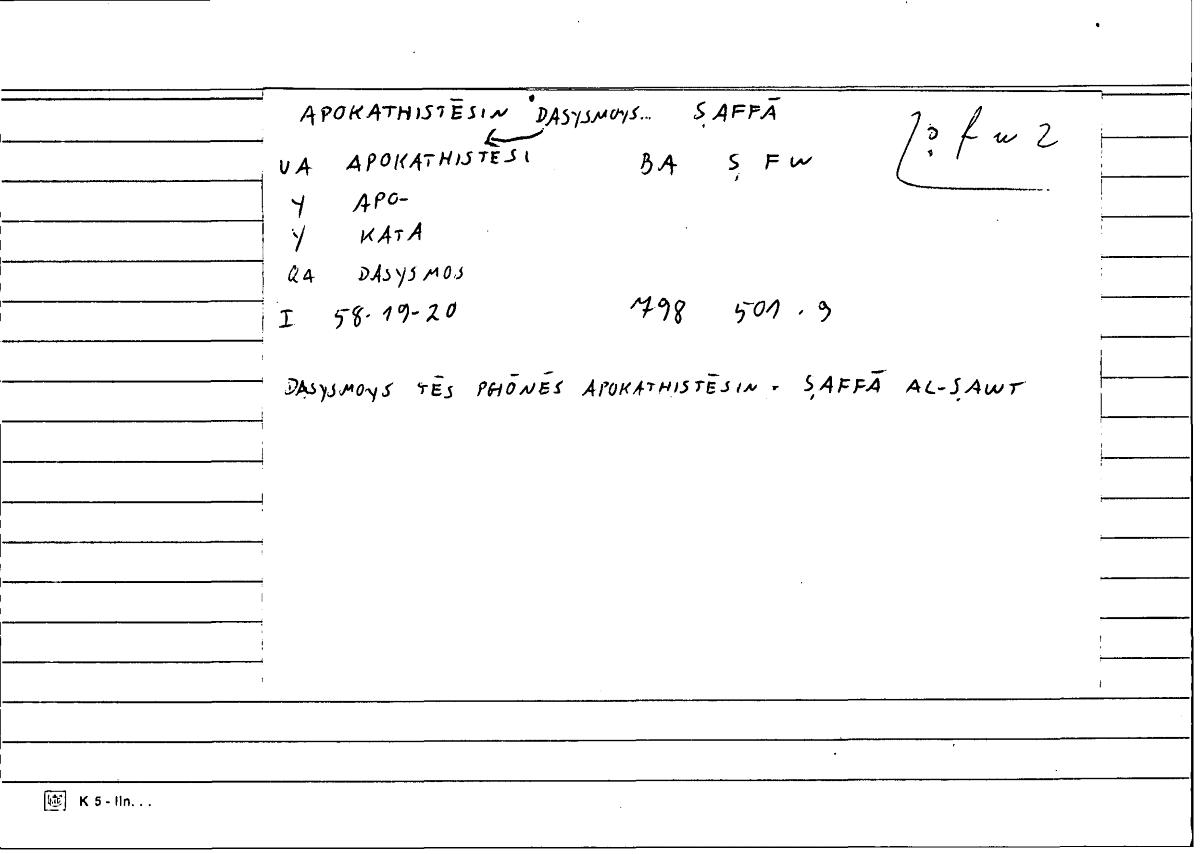 APOKATHISTĒSIN DASYSMOYS... ṢAFFĀ
UA APOKATHISTĒSI BA Ṣ F W
Y APO-
Y KATA
QA DASYSMOS
I 58.19-20 798 501.9
DASYSMOYS TĒS PHŌNĒS APOKATHISTĒSIN - ṢAFFĀ AL-ṢAWT
K 5 - IIn...